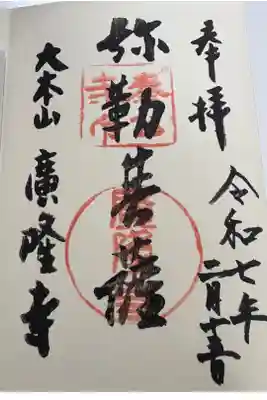 奉拝
令和七年
二月十
弥勒菩薩
大本山 廣隆寺